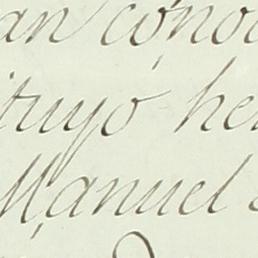 an cono
ituyo he
Manuel